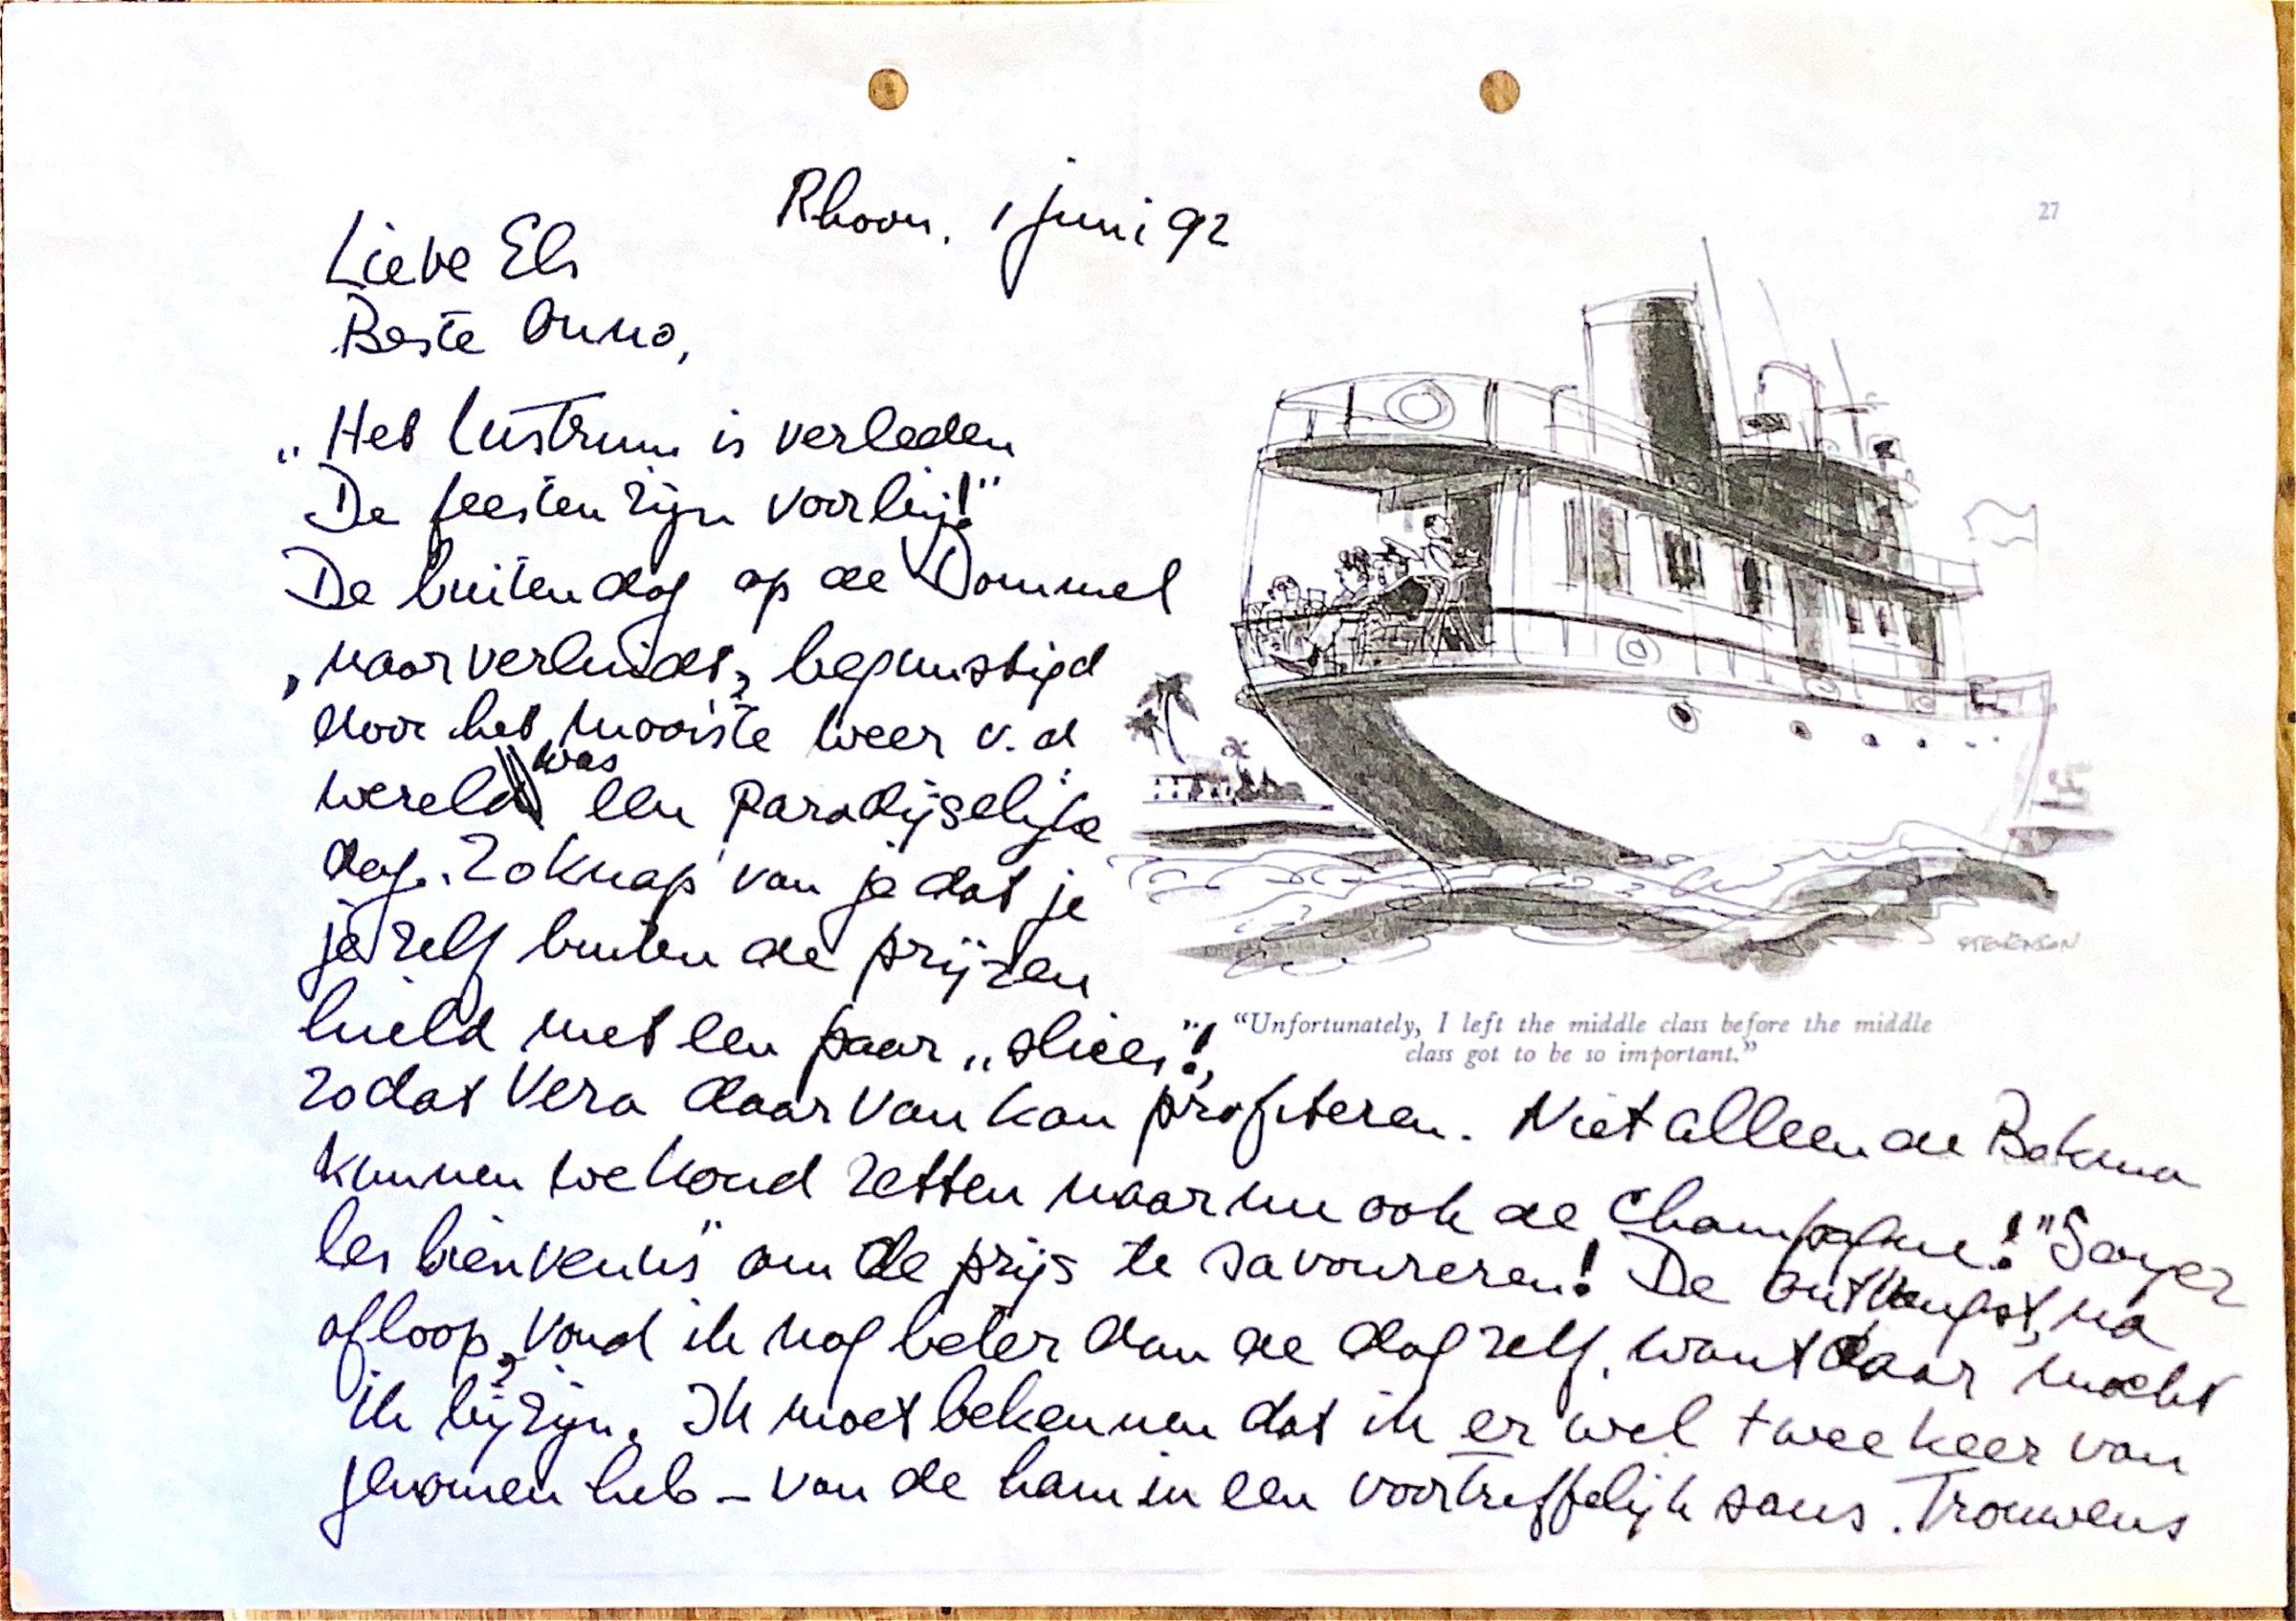 Rhoon, 1 juni 92
27
Lieve Els
Beste Onno,
„Het lustrum is verleden
De feesten zijn voorbij!"
De buitendag op de Dommel
, naar verluidt, begunstigd
door het mooiste weer v.d.
wereld was een paradijselijke
dag. Zo knap van je dat je
je zelf buiten de prijzen
hield met een paar „slices"!,
STEVENSON
“Unfortunately, I left the middle class before the middle
class got to be so important.”
zodat Vera daar van kan profiteren. Niet alleen de Bokma
kunnen we koud zetten maar nu ook de champagne! "Soyez
les bienvenus" om de prijs te savoureren! De ontvangst, na
afloop, vond ik nog beter dan de dag zelf, want daar mocht
ik bij zijn. Ik moet bekennen dat ik er wel twee keer van
genomen heb – van de ham in een voortreffelijk saus. Trouwens